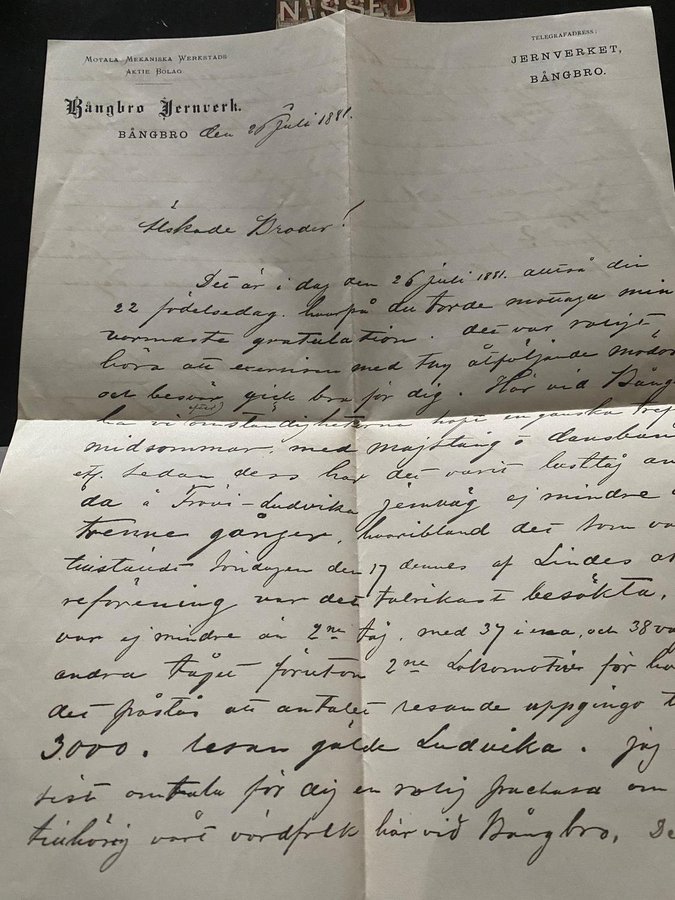 NISSED
MOTALA MEKANISKA WERKSTADS
AKTIE BOLAG
TELEGRAFADRESS:
JERNVERKET,
BÅNGBRO.
Bångbro Jernverk.
BÅNGBRO den 26 Juli 1881.
Älskade Broder!
Det är i dag den 26 juli 1881. alltså din
22 födelsedag. hvarpå du torde mottaga min
varmaste gratulation. det var roligt
höra att exersisen med thy åtföljande mödor
och besvär gick bra för dig. Här vid Bång
ha vi omständigheterna en ganska tref
midsommar, med majstång o dansban
etc. sedan dess har det varit lusttåg an
da å Frövi-Ludvika jernväg ej mindre
trenne gånger, hvaribland det som va
Söndagen den 17 dennes af Lindes
reförening var det talrikast besökta,
var ej mindre än 2ne tåg, med 37 i ena, och 38 va
andra tåget förutom 2ne Lokomotiver för
det påstås att antalet resande uppgingo t
3000. resan gälde Ludvika. jag
sist omtala för dig en rolig om
vårt värdfolk här vid Bångbro. De